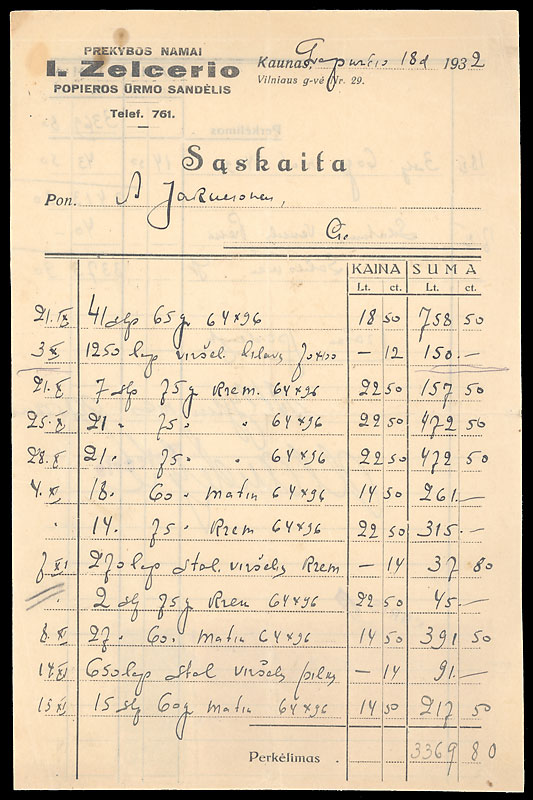 PREKYBOS NAMAI
I. Zelcerio
POPIEROS ŪRMO SANDĖLIS
Telef. 761.
Kaunas, 18d 1932
Vilniaus g-vė Nr. 29.
Sąskaita
Pon. A
KAINA SUMA
Lt. ct. Lt. ct.
21.IX 41 65 g 64×96 18 50 758 50
3 X 1250 lap viršel — 12 150.—
21.X 7 75 g Krem. 64×96 22 50 157 50
25.X 21 " 75 " " 64×96 22 50 472 50
28.X 21 " 75 " " 64×96 22 50 472 50
4.XI 18 " 60 " matin 64×96 14 50 261.—
" 14 " 75 " Krem 64×96 22 50 315.—
7 XI 270 lap Stal. viršelių Krem — 14 37 80
" 2 75 g Krem 64×96 22 50 45.—
8.XI 27 " 60 " matin 64×96 14 50 391 50
14 XI 650 lap Stal viršelių — 14 91.—
15 XI 15 60 g matin 64×96 14 50 217 50
Perkėlimas 3369 80